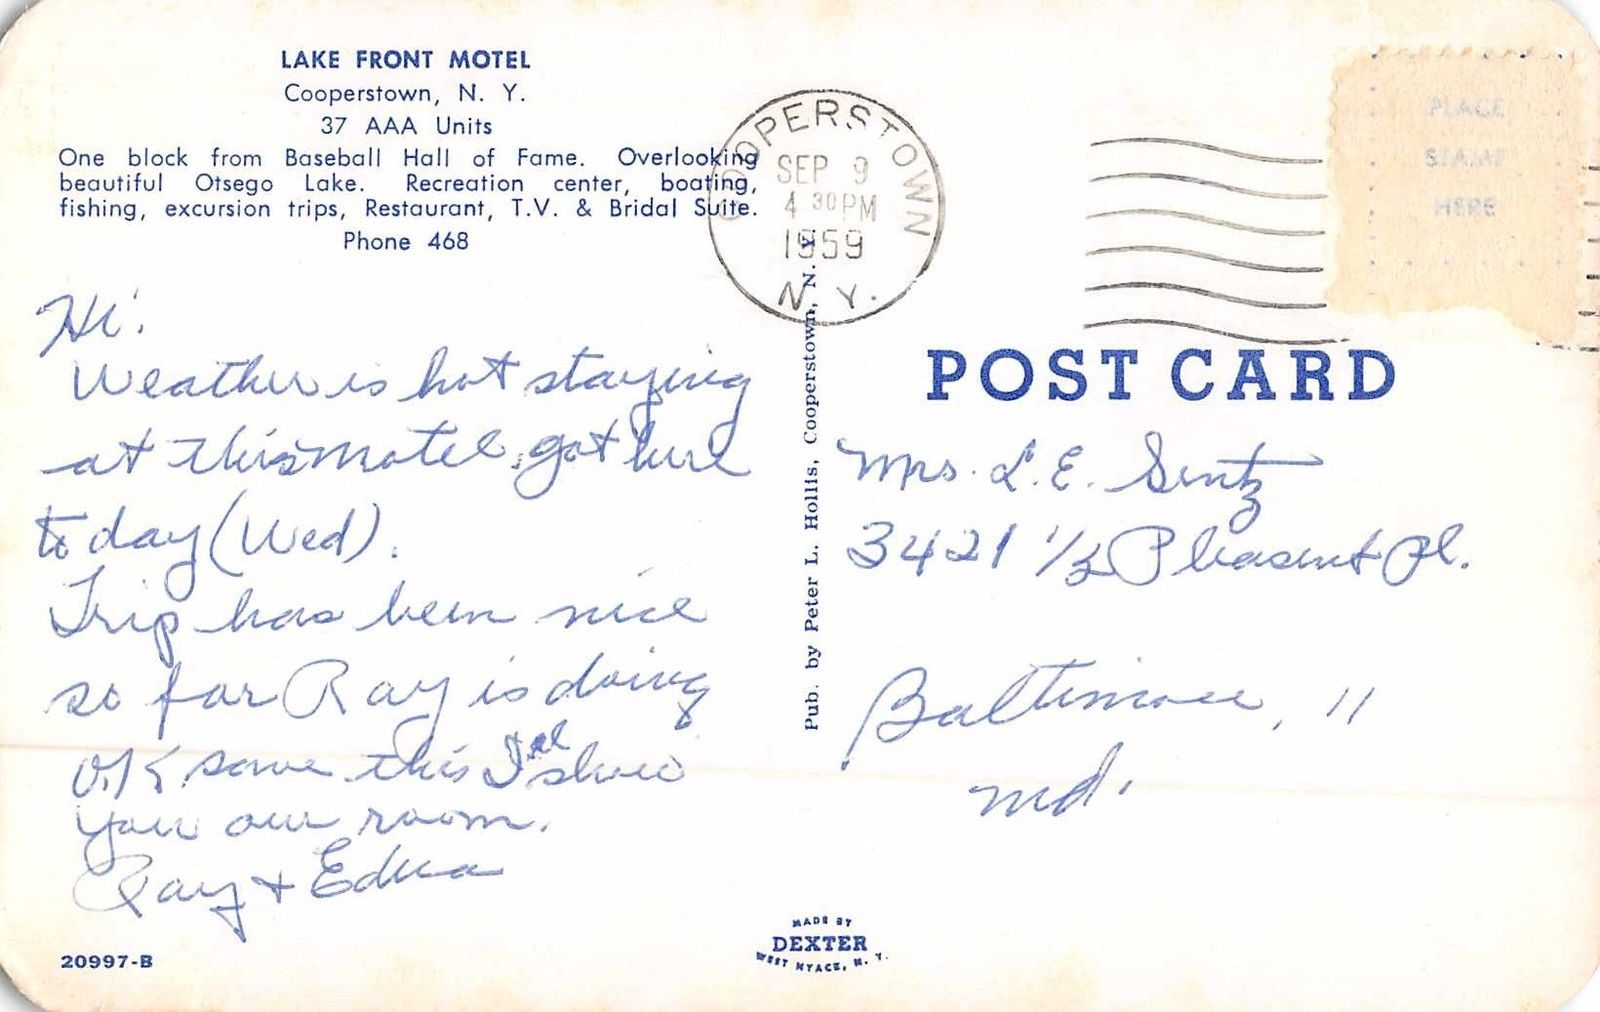 LAKE FRONT MOTEL
Cooperstown, N. Y.
37 AAA Units
One block from Baseball Hall of Fame. Overlooking
beautiful Otsego Lake. Recreation center, boating,
fishing, excursion trips, Restaurant, T.V. & Bridal Suite.
Phone 468
Hi!
Weather is hot staying
at this motel, got here
to day (Wed).
Trip has been nice
so far Ray is doing
O.K. save this I'al show
you our room.
Ray + Edna
20997-B
COOPERSTOWN
SEP 9
4 30 PM
1959
N. Y.
Pub. by Peter L. Hollis, Cooperstown, N. Y.
MADE BY
DEXTER
WEST NYACK, N. Y.
PLACE
STAMP
HERE
POST CARD
Mrs. L. E. Sentz
3421 1/2 Pleasent Pl.
Baltimore, 11
Md.